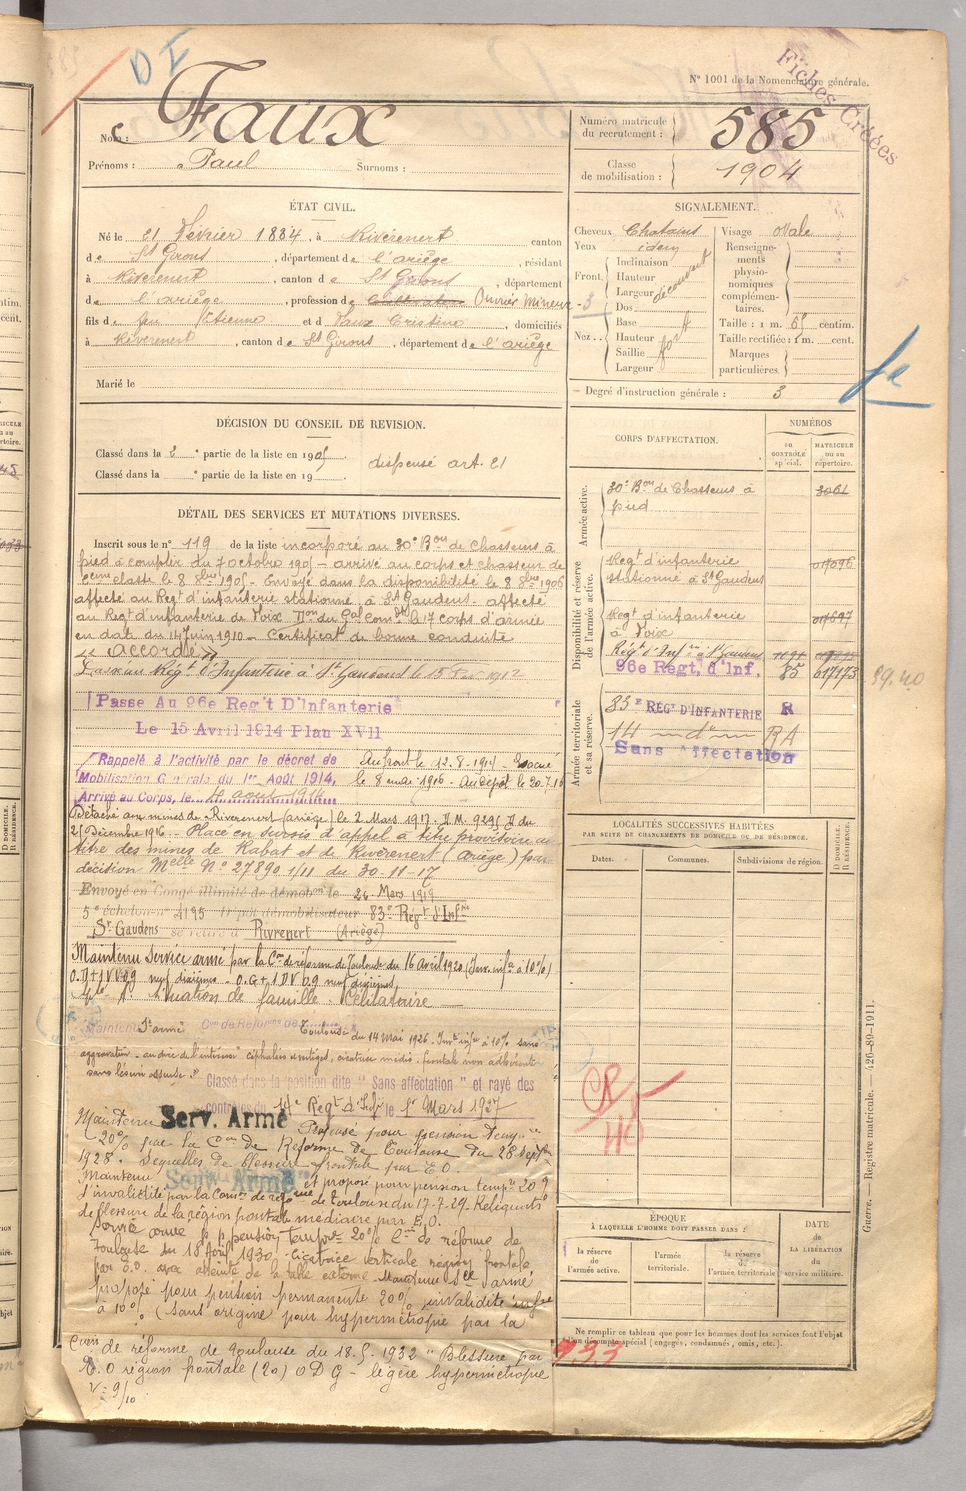 DI
N° 1001 de la Nomenclature générale.
Fiches Créées
Nom : Faux
Prénoms : Paul Surnoms :
Numéro matricule du recrutement : 585
Classe de mobilisation : 1904
ÉTAT CIVIL.
Né le 21 Février 1884, à Rivèrenert canton
de St Girons, département de l'ariège, résidant
à Rivèrenert, canton de St Girons, département
de l'ariège, profession de Cultivateur Ouvrier Mineur - 3
fils de feu Etienne et de Faux Cristine, domiciliés
à Rivèrenert, canton de St Girons, département de l'ariège
Marié le
SIGNALEMENT.
Cheveux Chatains
Yeux idem
Front. Inclinaison
Hauteur
Largeur découvert
Nez.. Dos
Base
Hauteur fort
Saillie
Largeur
Visage ovale
Renseignements physionomiques complémentaires.
Taille : 1 m. 65 centim.
Taille rectifiée : 1 m. cent.
Marques particulières.
Degré d'instruction générale : 3
DÉCISION DU CONSEIL DE REVISION.
Classé dans la 2 e partie de la liste en 1905.
Classé dans la e partie de la liste en 19
dispensé art. 21
DÉTAIL DES SERVICES ET MUTATIONS DIVERSES.
Inscrit sous le n° 119 de la liste incorporé au 30e Bon de Chasseurs à
pied à compter du 7 octobre 1905 - arrivé au corps et chasseur de
2eme classe le 8 8bre 1905 - Envoyé dans la disponibilité le 8 8bre 1906
affecté au Regt d'infanterie stationné à St Gaudens - affecté
au Regt d'infanterie de Foix Don du Gal Comdt le 17 corps d'armée
en date du 14 Juin 1910 - Certificat de bonne conduite
« Accordé »
Passé au Régt d'Infanterie à St Gaudens le 15 1912
Passe Au 96e Reg't D'Infanterie
Le 15 Avril 1914 Plan XVII
Rappelé à l'activité par le décret de
Mobilisation Générale du 1er Août 1914,
Arrivé au Corps, le 4 août 1914
Au front le 12.8.1914 - Evacué
le 8 mai 1916 - Au dépôt le 20.7.16
Détaché aux mines de Riverenert (ariège) le 2 Mars 1917. D.M. 9295 D du
25 Décembre 1916. - Placé en sursis d'appel à titre provisoire au
titre des mines de Rabat et de Rivèrenert (Ariège) par
décision Melle N° 27890 1/11 du 30-11-17
Envoyé en Congé illimité de démobon le 26 Mars 1919
5e échelon n° 4195 Dépôt démobilisateur 83e Régt d'Infrie
St Gaudens se retire à Rivrenert (Ariège)
Maintenu Service armé par la Con de réforme de Toulouse du 16 Avril 1920 (Inv. infre à 10%)
O.D + 1 V 0.9 neuf dixièmes - O.G + 1 D V 0.9 neuf dixièmes
situation de famille. Célibataire
Maintenu St armé Con de Réforme de Toulouse du 14 Mai 1926. Invté infre à 10% sans
aggravation - au dire de l'intéressé céphalées et vertiges, cicatrice médio-frontale non adhérente
sans lésion osseuse."
Classé dans la position dite " Sans affectation " et rayé des
contrôles du 14e Regt d'Infie le 1er Mars 1927
Maintenu Serv. Armé Proposé pour pension tempre
20% par la Con de Réforme de Toulouse du 28 Septbre
1928. Séquelles de blessure frontale par E.O.
Maintenu Serv. Armé et proposé pour pension tempre 20%
d'invalidité par la Comon de réforme de Toulouse du 17-7-29. Reliquats
de blessure de la région frontale médiaire par E.O.
Service armé p. p. pension tempre 20% Con de réforme de
Toulouse du 18 Avril 1930. Cicatrice verticale région frontale
par E.O. avec atteinte de la table externe. Maintenu Sce armé
proposé pour pension permanente 20% invalidité infre
à 10% (sans origine) pour hypermétropie par la
Com de réforme de Toulouse du 18.5.1932 " Blessure par
E.O région frontale (20) O D G - légère hypermétropie
V = 9/10
CORPS D'AFFECTATION.
NUMÉROS
au contrôle spécial.
matricule ou au répertoire.
Armée active.
30e Bon de Chasseurs à pied 3061
Disponibilité et réserve de l'armée active.
Regt d'infanterie stationné à St Gaudens 017096
Regt d'infanterie à Foix 017697
Régt d'Infrie à St Gaudens
96e Regt. d'Inf. 85 017173
Armée territoriale et sa réserve.
83e REGt D'INFANTERIE R
14 - d° - RA
Sans Affectation
39.40
LOCALITÉS SUCCESSIVES HABITÉES
PAR SUITE DE CHANGEMENTS DE DOMICILE OU DE RÉSIDENCE.
Dates. Communes. Subdivisions de région.
D DOMICILE.
R RÉSIDENCE.
ÉPOQUE
À LAQUELLE L'HOMME DOIT PASSER DANS :
la réserve de l'armée active.
l'armée territoriale.
la réserve de l'armée territoriale.
DATE DE LA LIBÉRATION du service militaire.
Ne remplir ce tableau que pour les hommes dont les services font l'objet
d'un décompte spécial (engagés, condamnés, omis, etc.).
Guerre. — Registre matricule. — 426-89-1911.